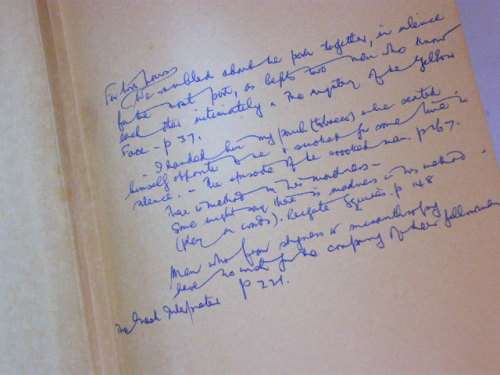 For two hours
we rambled about the park together, in silence
for the most part, as befits two men who know
each other intimately. The mystery of the Yellow
Face - p 37.
I handed him my pouch (tobacco) & he seated
himself opposite to me & smoked for some time in
silence. - The episode of the crooked man. p 167.
There is method in his madness -
Some might say there is madness in his method -
(play on words). Reigate Squires. p 148
Men who from shyness or misanthropy
have no wish for the company of their fellowmen
The Greek Interpreter p 221.